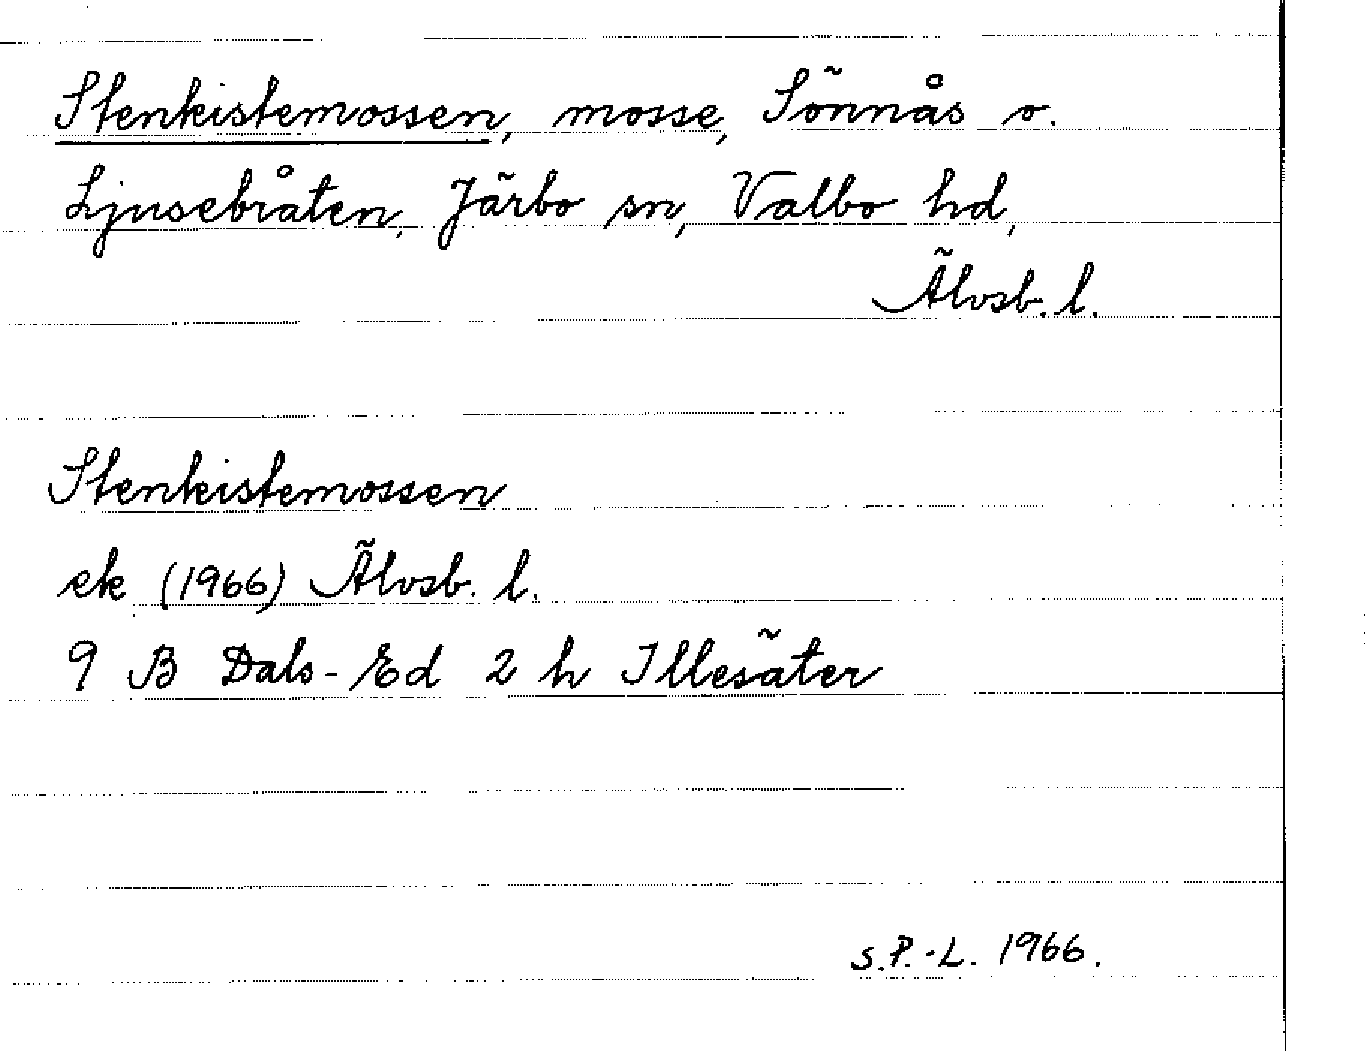 Stenkistemossen, mosse, Sönnås o.
Ljusebråten, Järbo sn, Valbo hd,
Älvsb. l.
Stenkistemossen
ek (1966) Älvsb. l.
9 B Dals-Ed 2 h Illesäter
S.P.-L. 1966.